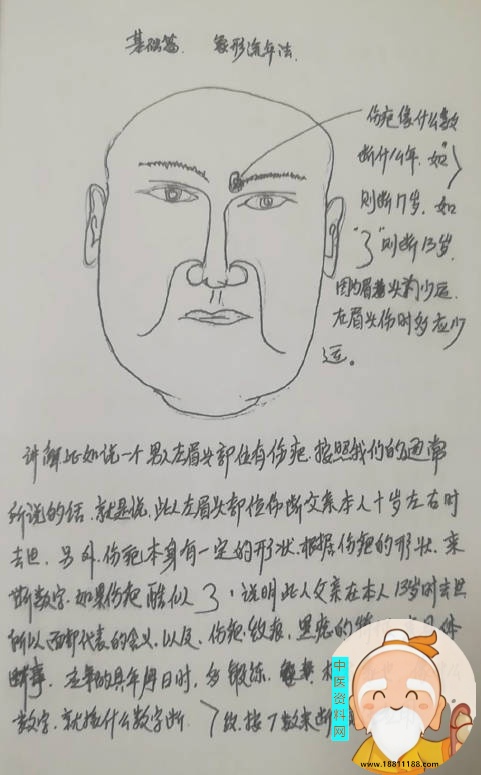 基础篇. 象形流年法.
伤疤像什么数
断什么年. 如"7
则断17岁. 如
"3"则断13岁.
因为眉头为少运.
左眉头伤时多应少
运。
讲解比如说一个男人左眉头部位有伤疤. 按照我们的通常
所说的话. 就是说. 此人左眉头部位伤断父亲本人十岁左右时
去世. 另外. 伤疤本身有一定的形状. 根据伤疤的形状. 来
断数字. 如果伤疤酷似3, 说明此人父亲在本人13岁时去世
所以面部代表的含义. 以及. 伤疤. 纹痕. 黑痣的
断事. 多锻炼.
数字. 就按什么数字断. 7纹. 按7数来断
中医资料网
www.18811188.com